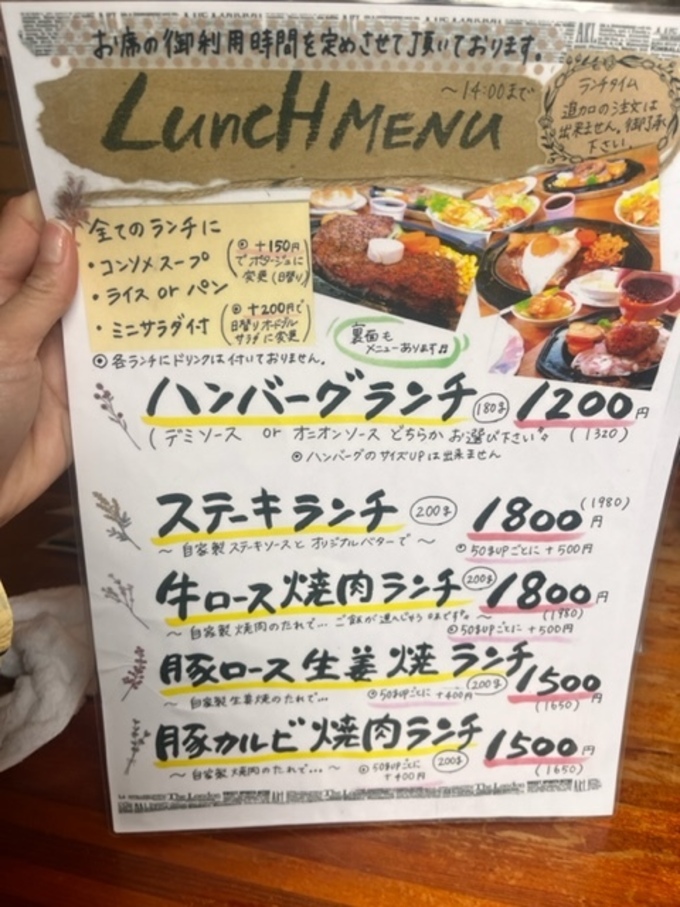 お席の御利用時間を定めさせて頂いております。
LuncH MENU
～14:00まで
ランチタイム
追加の注文は
出来ません。御了承
下さい。
全てのランチに
・コンソメスープ
(◎ +150円
でポタージュに
変更(日替り))
・ライス or パン
・ミニサラダ付
(◎ +200円で
日替りオードブル
サラダに変更)
◎ 各ランチにドリンクは付いておりません。
裏面も
メニューあります♬
ハンバーグランチ (180g) 1200円
(1320)
(デミソース or オニオンソース どちらか お選び下さい。
◎ ハンバーグのサイズUPは出来ません
ステーキランチ (200g) 1800円 (1980)
～ 自家製 ステーキソースと オリジナルバターで ～
◎ 50gUPごとに +500円
牛ロース焼肉ランチ (200g) 1800円
(1980)
～ 自家製 焼肉のたれで… ご飯が進んじゃう
◎ 50gUPごとに +500円
豚ロース生姜焼ランチ (200g) 1500円
(1650)
～ 自家製 生姜焼のたれで…
◎ 50gUPごとに +400円
豚カルビ焼肉ランチ (200g) 1500円
(1650)
～ 自家製 焼肉のたれで… ～
◎ 50gUPごとに
+400円
The London